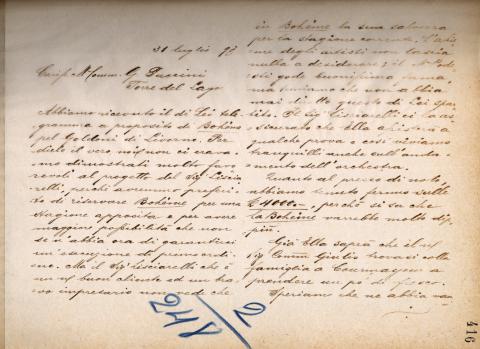 31 luglio 97
Preg. Sr Comm. G Puccini
Torre del Lago
Abbiamo ricevuto il di Lei tele
gramma a proposito di Bohème
pel Goldoni di Livorno. Per
dire il vero, noi non ci sarem
mo dimostrati molto favo
revoli al progetto del Sig.
perchè avremmo preferi
to di riservare Bohème per una
stagione apposita e per avere
maggior possibilità che non
si abbia ora di garantirci
un'esecuzione di primo ordi
ne. Ma il Sig. che è
un ns/ buon cliente ed un bra
vo impresario non vede che
in Bohème la sua salvezza
per la stagione corrente. L'ele
degli artisti non lascia
nulla a desiderare; il Mo
gode buonissima fama
ma che non abbia
mai diretto questo di Lei spar
tito. Il Sig. ci ha as
sicurato che Ella assisterà a
qualche prova e così viviamo
tranquilli anche sull'anda
mento dell'orchestra.
Quanto al prezzo di nolo,
abbiamo tenuto fermo sulle
£ 4000.-, perchè si sa che
la Bohème varrebbe molto di
più.
Già Ella saprà che il ns/
Sig. Comm. Giulio trovasi colla
famiglia a Courmayeur a
prendere un po' di fresco.
Speriamo che ne abbia van
248/2
416